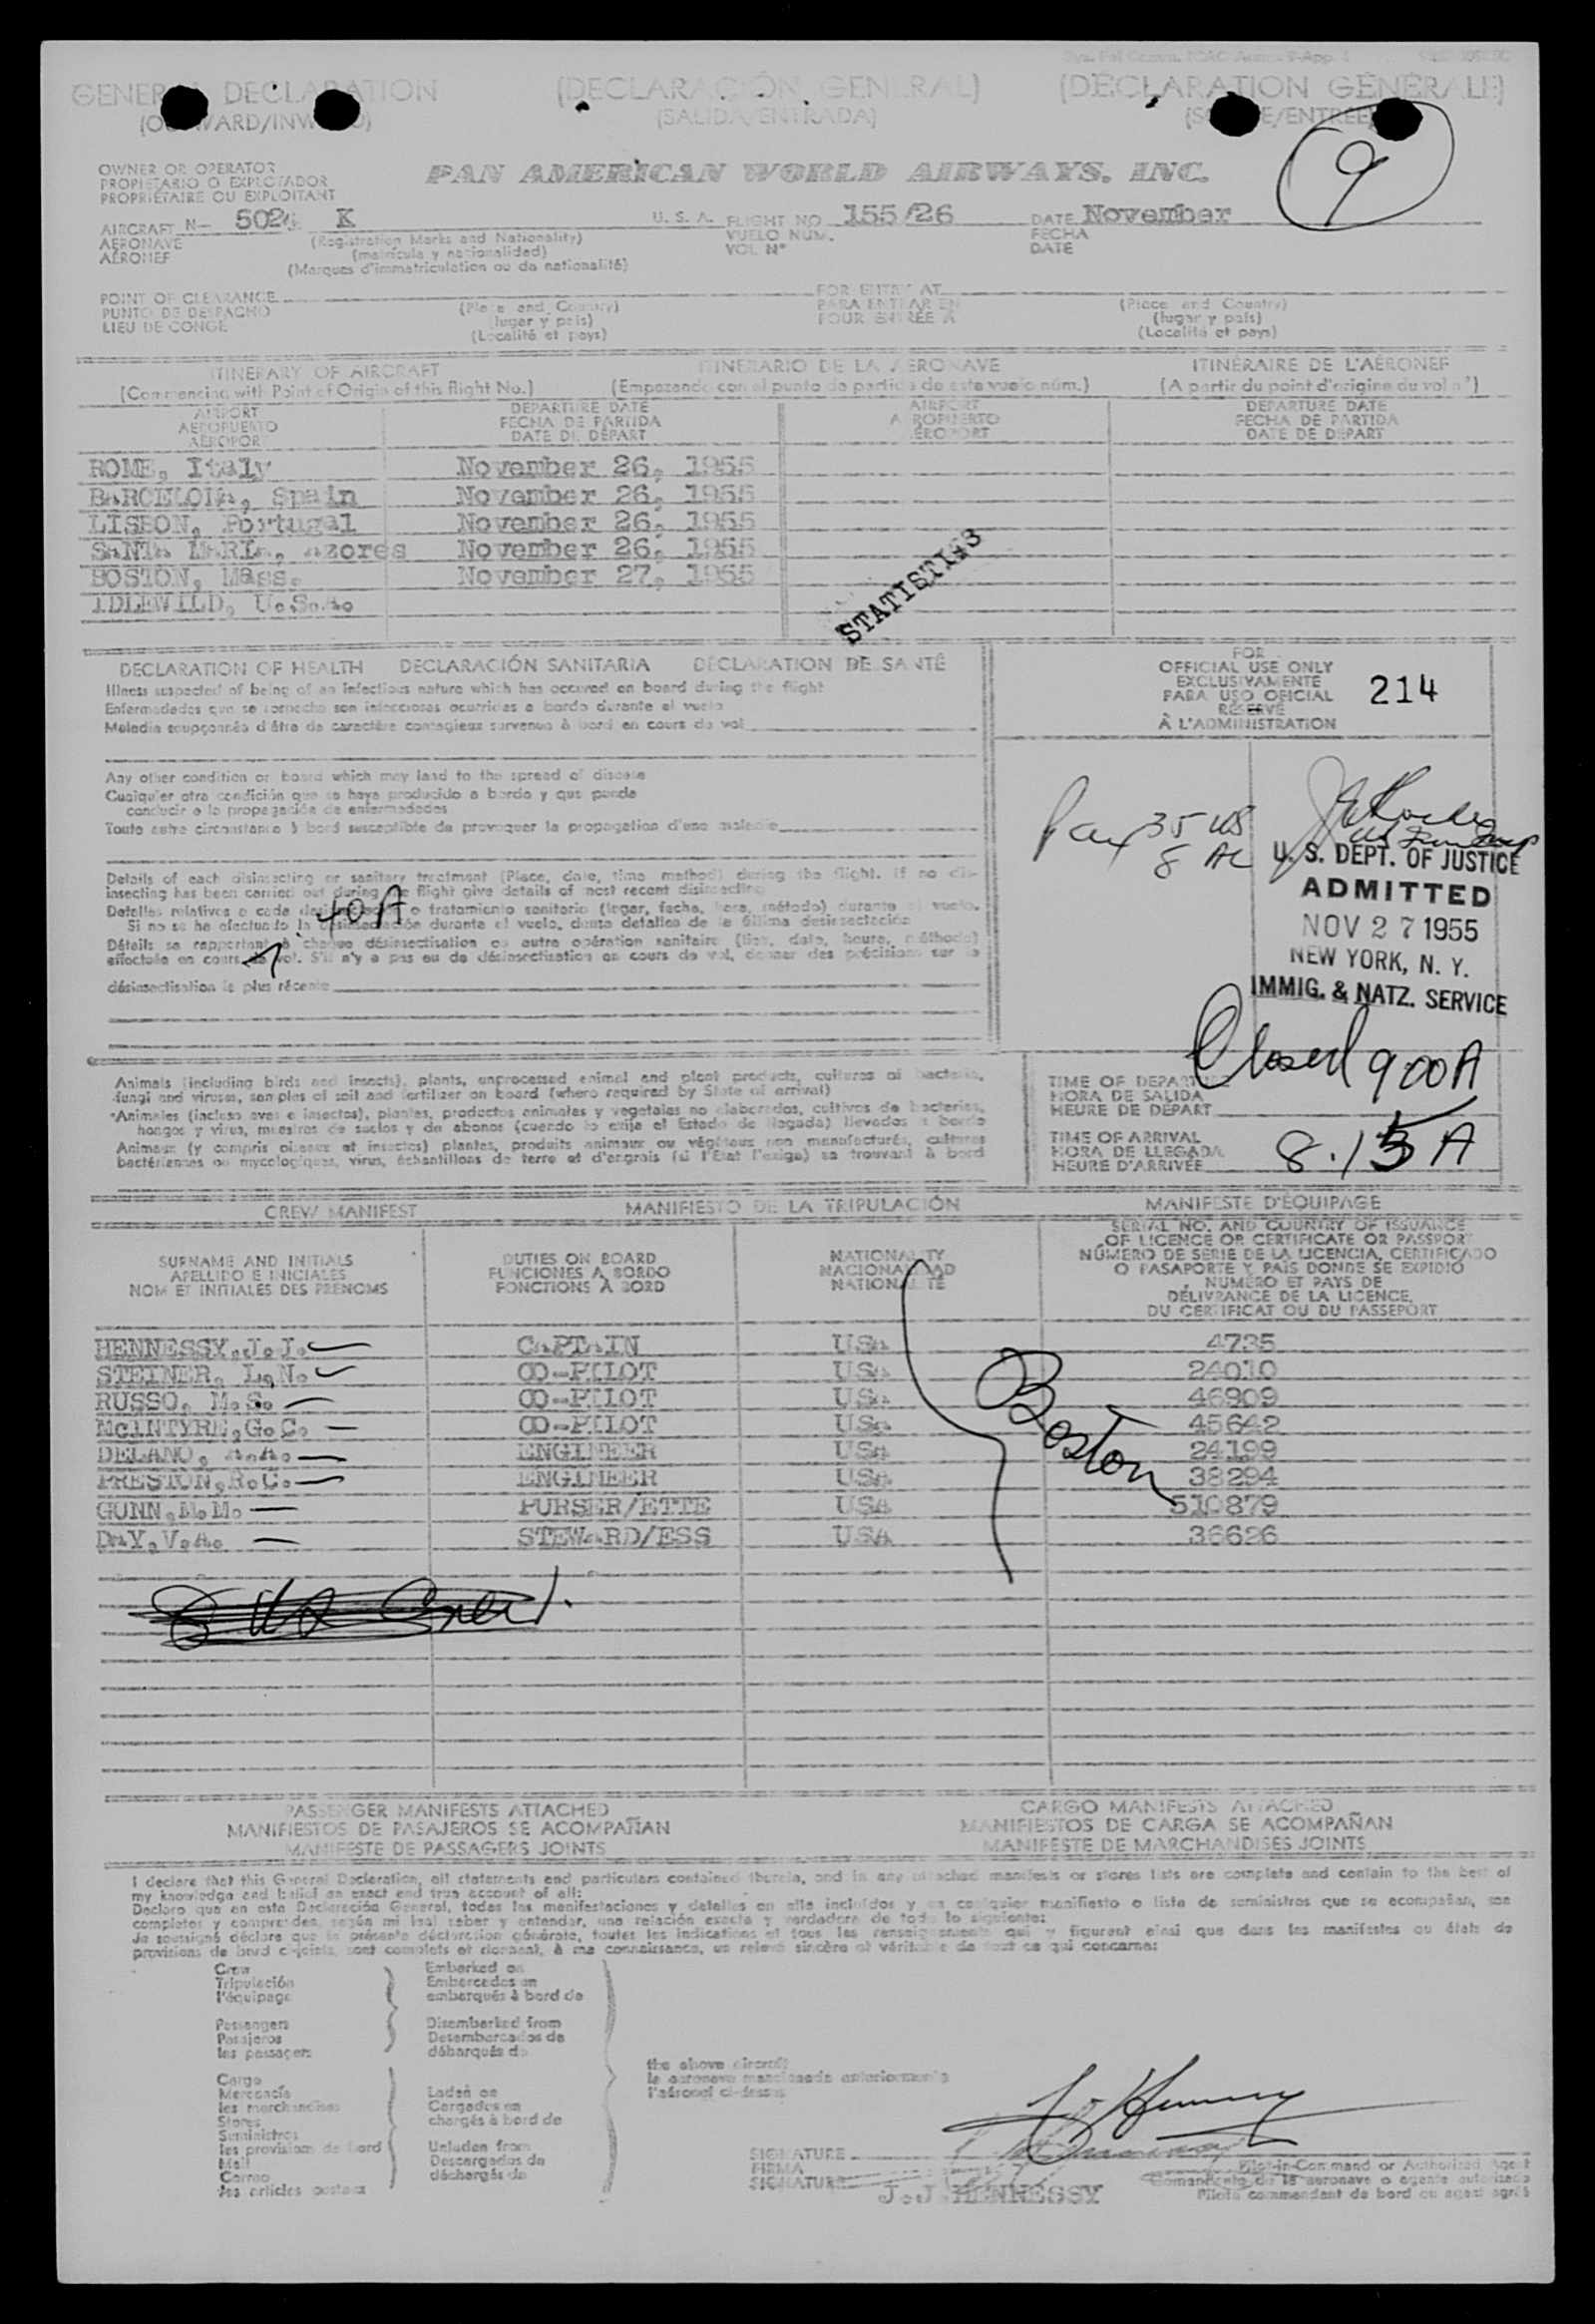 GENERAL DECLARATION (DECLARACIÓN GENERAL) (DÉCLARATION GÉNÉRALE)
(OUTWARD/INWARD) (SALIDA/ENTRADA) (SORTIE/ENTRÉE)
9
OWNER OR OPERATOR
PROPIETARIO O EXPLOTADOR
PROPRIÉTAIRE OU EXPLOITANT
PAN AMERICAN WORLD AIRWAYS, INC.
AIRCRAFT N- K U. S. A. FLIGHT NO. 155/26 DATE November
AERONAVE (Registration Marks and Nationality) VUELO NUM. FECHA
AÉRONEF (matrícula y nacionalidad) VOL N° DATE
(Marques d'immatriculation ou de nationalité)
POINT OF CLEARANCE FOR ENTRY AT
PUNTO DE DESPACHO (Place and Country) PARA ENTRAR EN (Place and Country)
LIEU DE CONGÉ (lugar y país) POUR ENTRÉE À (lugar y país)
(Localité et pays) (Localité et pays)
ITINERARY OF AIRCRAFT ITINERARIO DE LA AERONAVE ITINÉRAIRE DE L'AÉRONEF
(Commencing with Point of Origin of this flight No.) (Empezando con el punto de partida de este vuelo núm.) (A partir du point d'origine du vol n°)
AIRPORT DEPARTURE DATE AIRPORT DEPARTURE DATE
AEROPUERTO FECHA DE PARTIDA AEROPUERTO FECHA DE PARTIDA
AÉROPORT DATE DE DÉPART AÉROPORT DATE DE DÉPART
ROME, Italy November 26, 1955
BARCELONA, Spain November 26, 1955
LISBON, Portugal November 26, 1955
SANTA MARIA, Azores November 26, 1955
BOSTON, Mass. November 27, 1955
IDLEWILD, U.S.A.
STATISTICS
DECLARATION OF HEALTH DECLARACIÓN SANITARIA DÉCLARATION DE SANTÉ
Illness suspected of being of an infectious nature which has occured on board during the flight
Enfermedades que se sospecha son infecciosas ocurridas a bordo durante el vuelo
Maladie soupçonnés d'être de caractère contagieux survenus à bord en cours de vol
FOR
OFFICIAL USE ONLY
EXCLUSIVAMENTE
PARA USO OFICIAL
RÉSERVÉ
À L'ADMINISTRATION
214
Any other condition on board which may lead to the spread of disease
Cualquier otra condición que se haya producido a bordo y que pueda
conducir a la propagación de enfermedades
Toute autre circonstance à bord susceptible de provoquer la propagation d'une maladie
Pax 35 US
8 AL
U. S. DEPT. OF JUSTICE
ADMITTED
NOV 27 1955
NEW YORK, N. Y.
IMMIG. & NATZ. SERVICE
Details of each disinsecting or sanitary treatment (Place, date, time method) during the flight. If no dis-
insecting has been carried out during the flight give details of most recent disinsecting
Detalles relativos a cada desinsectación o tratamiento sanitario (lugar, fecha, hora, método) durante el vuelo.
Si no se ha efectuado la desinsectación durante el vuelo, dense detalles de la última desinsectación
Détails se rapportant à chaque désinsectisation ou autre opération sanitaire (lieu, date, heure, méthode)
effectuée en cours de vol. S'il n'y a pas eu de désinsectisation en cours de vol, donner des précisions sur la
désinsectisation la plus récente
40A
Closed 900A
Animals (including birds and insects), plants, unprocessed animal and plant products, cultures of bacteria,
fungi and viruses, samples of soil and fertilizer on board (where required by State of arrival)
Animales (incluso aves e insectos), plantas, productos animales y vegetales no elaborados, cultivos de bacterias,
hongos y virus, muestras de suelos y de abonos (cuando lo exija el Estado de llegada) llevados a bordo
Animaux (y compris oiseaux et insectes) plantes, produits animaux ou végétaux non manufacturés, cultures
bactériennes ou mycologiques, virus, échantillons de terre et d'engrais (si l'Etat l'exige) se trouvant à bord
TIME OF DEPARTURE
HORA DE SALIDA
HEURE DE DÉPART
TIME OF ARRIVAL
HORA DE LLEGADA
HEURE D'ARRIVÉE
8.15 A
CREW MANIFEST MANIFIESTO DE LA TRIPULACIÓN MANIFESTE D'ÉQUIPAGE
SURNAME AND INITIALS
APELLIDO E INICIALES
NOM ET INITIALES DES PRENOMS
DUTIES ON BOARD
FUNCIONES A BORDO
FONCTIONS À BORD
NATIONALITY
NACIONALIDAD
NATIONALITÉ
SERIAL NO. AND COUNTRY OF ISSUANCE
OF LICENCE OR CERTIFICATE OR PASSPORT
NÚMERO DE SERIE DE LA LICENCIA, CERTIFICADO
O PASAPORTE Y PAÍS DONDE SE EXPIDIÓ
NUMÉRO ET PAYS DE
DÉLIVRANCE DE LA LICENCE,
DU CERTIFICAT OU DU PASSEPORT
HENNESSY, J.J. CAPTAIN USA 4735
STEINER, L.N. CO-PILOT USA 24010
RUSSO, M.S. CO-PILOT USA 46909
McINTYRE, G.C. CO-PILOT USA 45642
DELANO, A.A. ENGINEER USA 24199
PRESTON, R.C. ENGINEER USA 38294
GUNN, M.M. PURSER/ETTE USA 510879
DAY, V.A. STEWARD/ESS USA 36626
Boston
PASSENGER MANIFESTS ATTACHED CARGO MANIFESTS ATTACHED
MANIFIESTOS DE PASAJEROS SE ACOMPAÑAN MANIFIESTOS DE CARGA SE ACOMPAÑAN
MANIFESTE DE PASSAGERS JOINTS MANIFESTE DE MARCHANDISES JOINTS
I declare that this General Declaration, all statements and particulars contained therein, and in any attached manifests or stores lists are complete and contain to the best of
my knowledge and belief an exact and true account of all:
Declaro que en esta Declaración General, todas las manifestaciones y detalles en ella incluídos y en cualquier manifiesto o lista de suministros que se acompañan, son
completos y comprenden, según mi leal saber y entender, una relación exacta y verdadera de todo lo siguiente:
Je soussigné déclare que la présente déclaration générale, toutes les indications et tous les renseignements qui y figurent ainsi que dans les manifestes ou états de
provisions de bord ci-joints, sont complets et donnent, à ma connaissance, un relevé sincère et véritable de tout ce qui concerne:
Crew
Tripulación
l'équipage
Passengers
Pasajeros
les passagers
Embarked on
Embarcados en
embarqués à bord de
Disembarked from
Desembarcados de
débarqués de
Cargo
Mercancía
les marchandises
Stores
Suministros
les provisions de bord
Mail
Correo
les articles postaux
Laden on
Cargados en
chargés à bord de
Unladen from
Descargados de
déchargés de
the above aircraft
la aeronave mencionada anteriormente
l'aéronef ci-dessus
SIGNATURE
FIRMA
SIGNATURE
J.J. HENNESSY
Pilot-in-Command or Authorized Agent
Comandante de la aeronave o agente autorizado
Pilote commandant de bord ou agent agréé